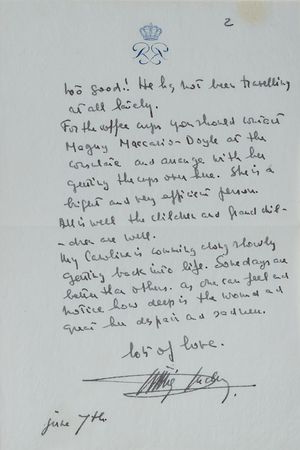 2
too good!! He has not been travelling
at all lately.
For the coffee cups you should contact
Maguy Maccario-Doyle at the
consulate and arrange with her
getting the cups over here. She is a
bright and very efficient person.
All is well the children and grand chil-
-dren are well.
My Caroline is comming along slowly
getting back into life. Some days are
better than others. as one can feel and
notice how deep is the wound and
great her despair and sadness.
lots of love.
june 7th.